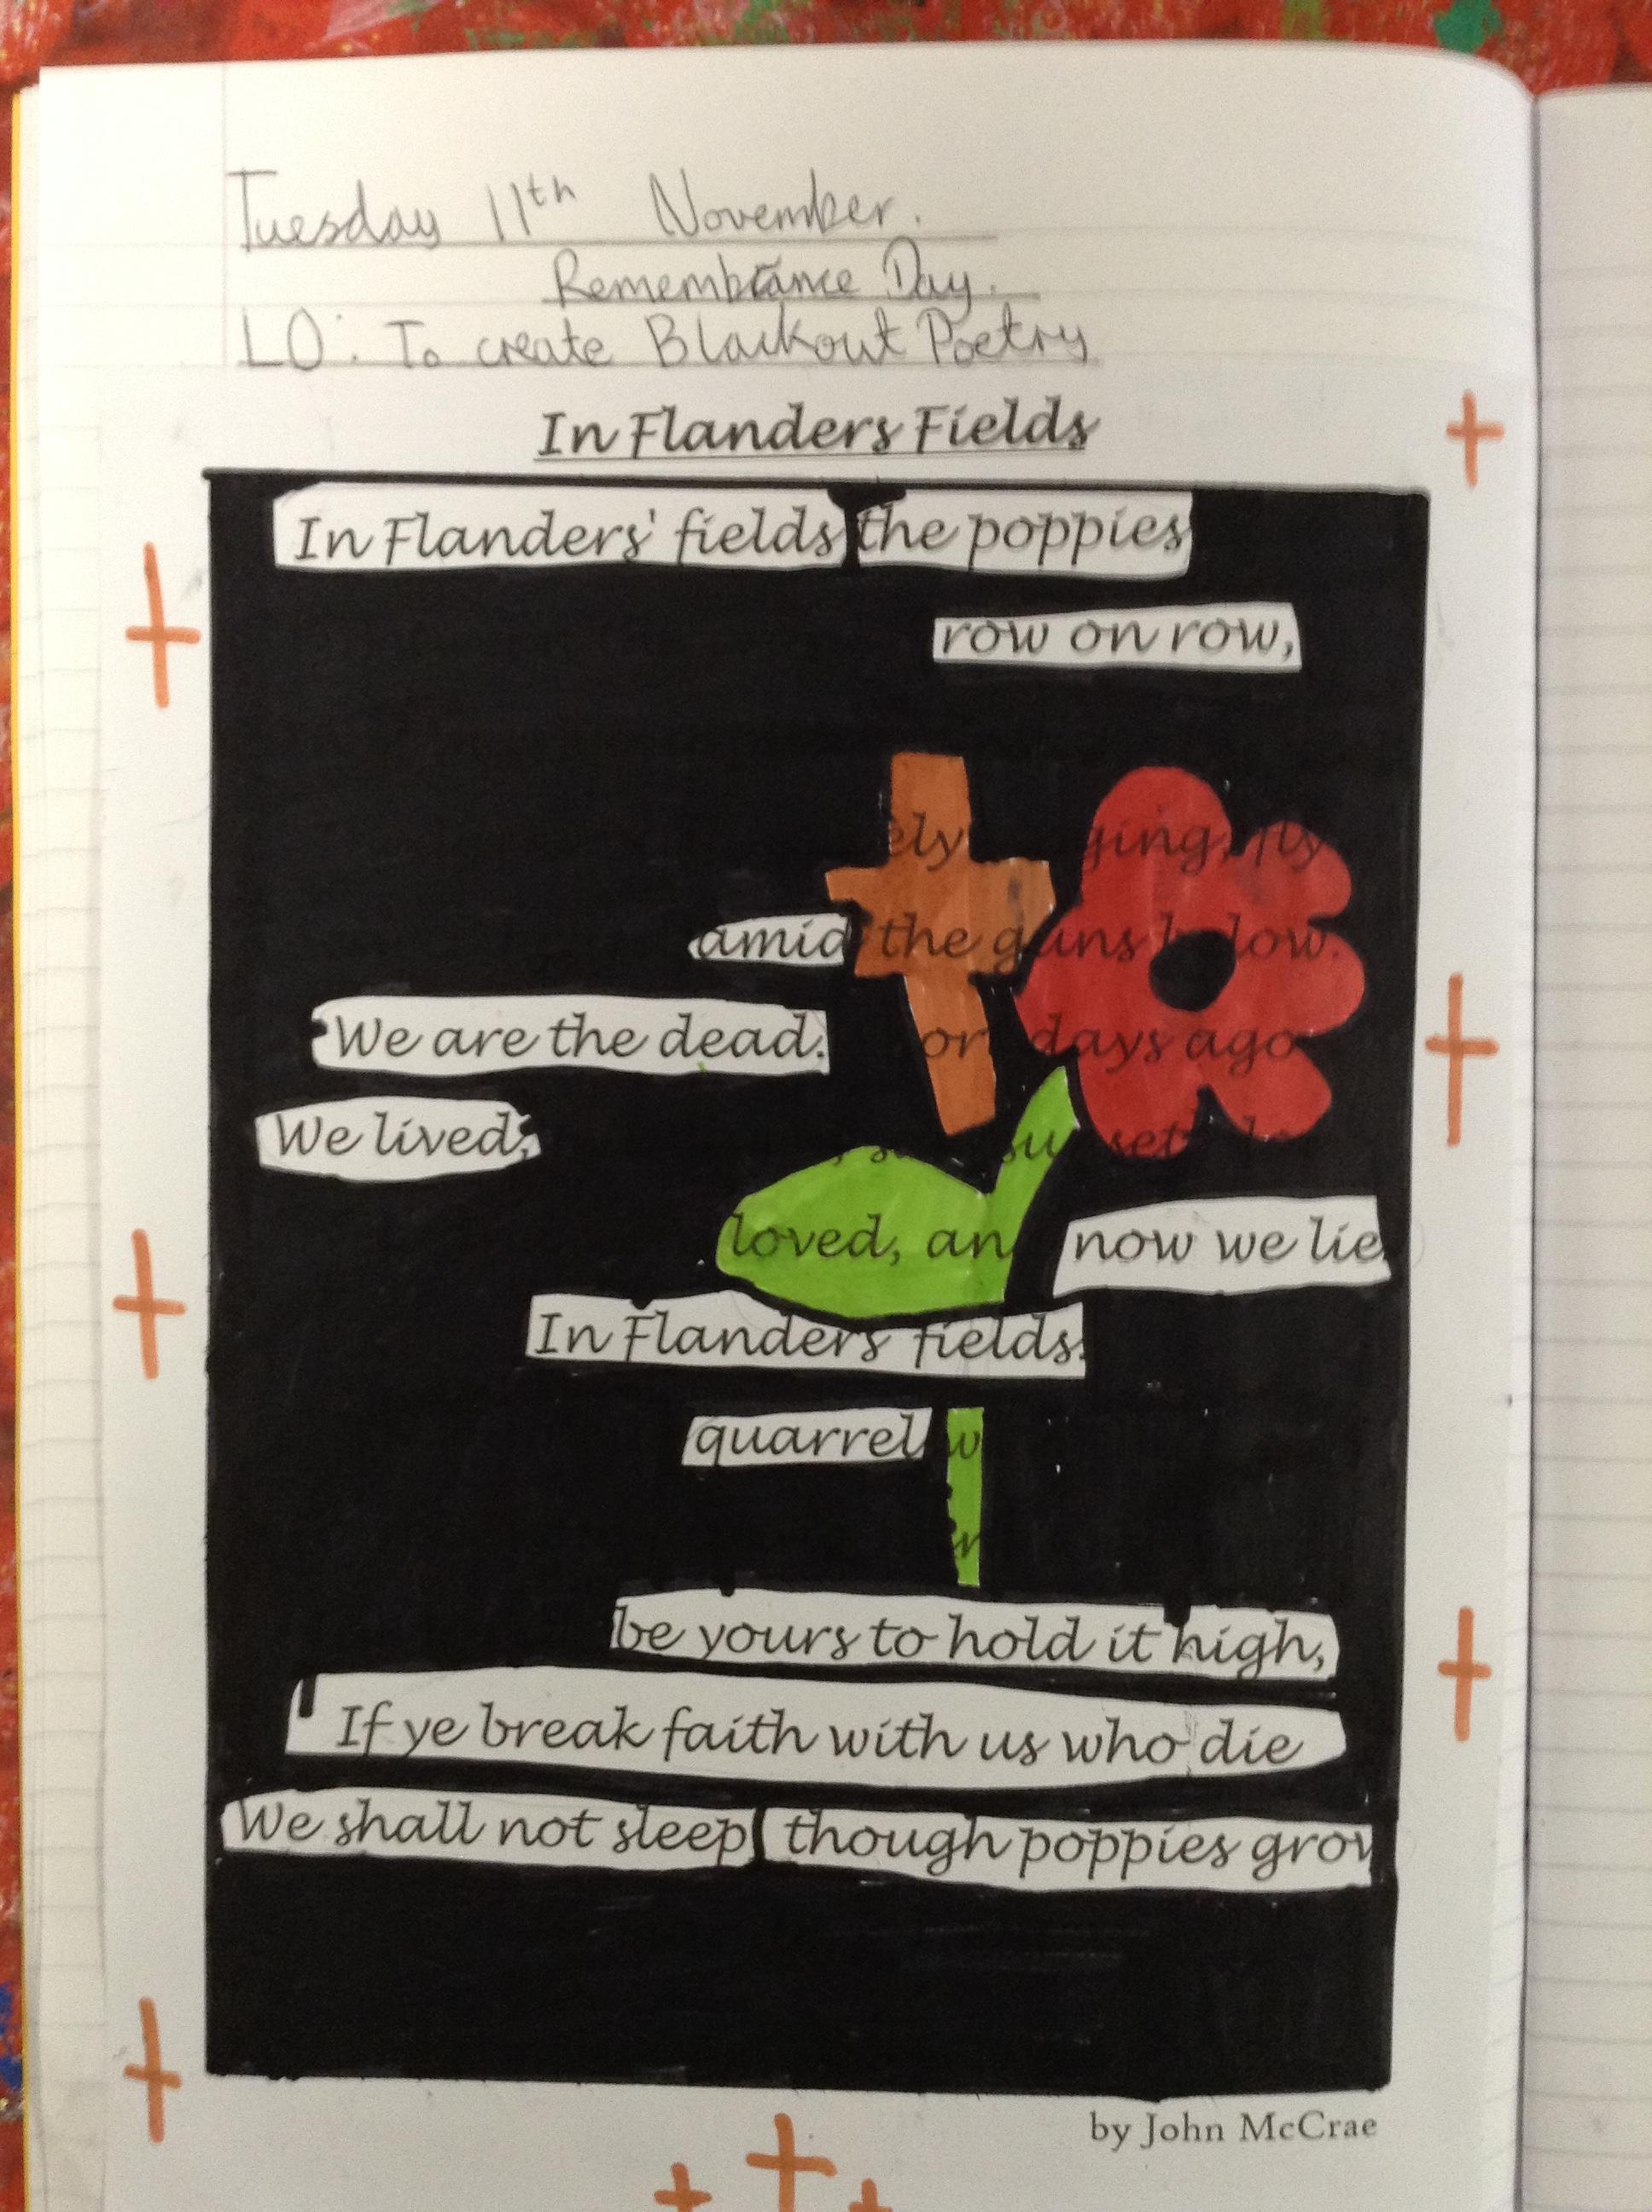 Tuesday 11th November.
Remembrance Day.
LO: To create Blackout Poetry
In Flanders Fields
In Flanders' fields the poppies
row on row,
fly
amid the guns below.
We are the dead. days ago
We lived,
loved, now we lie
In Flanders' fields.
quarrel
be yours to hold it high,
If ye break faith with us who die
We shall not sleep, though poppies grow
by John McCrae